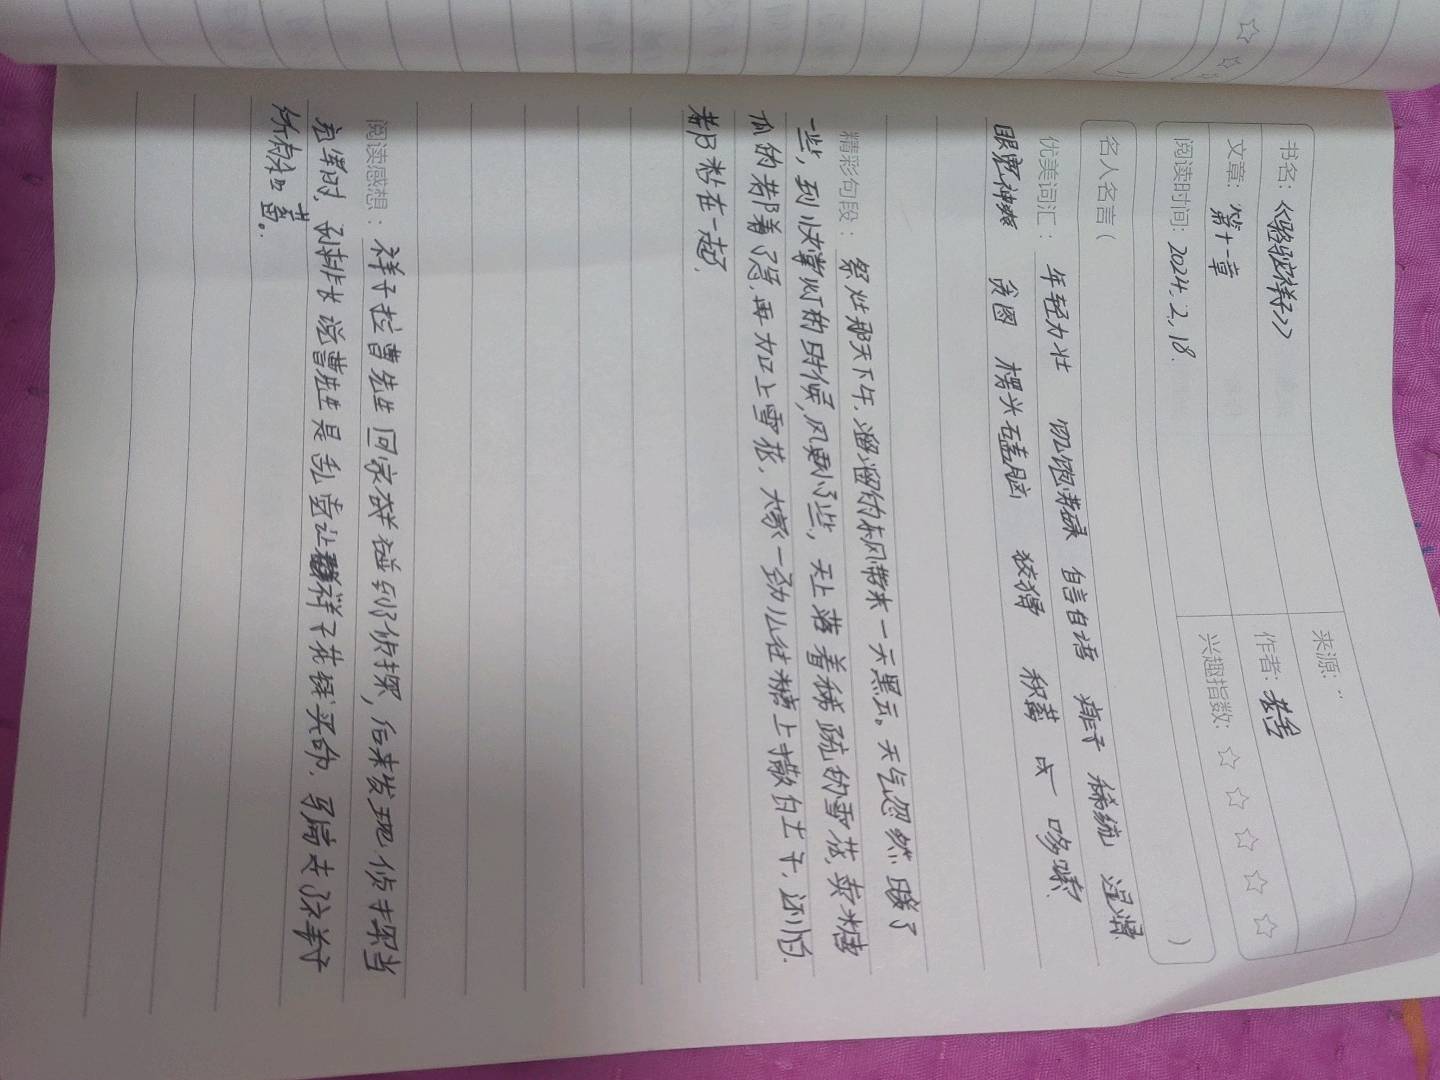 书名：《骆驼祥子》
来源：
文章：第十一章
作者：老舍
阅读时间：2024.2.18.
兴趣指数：☆ ☆ ☆ ☆ ☆
名人名言（ ）
优美词汇： 年轻力壮 肥饱满绿 自言自语 辫子 稀疏 湿濛
眼宽神爽 贪图 楞头磕脑 狡猾 积蓄 哆嗦
精彩句段： 祭灶那天下午，溜溜的东风带来一天黑云。天气忽然暖了
一些，到快掌灯的时候，风更小些，天上落着稀疏的雪花，卖糖
瓜的都着了急，再加上雪花，大家一劲儿往糖上撒白土子，还怕
都粘在一起了。
阅读感想： 祥子拉曹先生回家碰到了侦探，后来发现侦探当
孙排长说曹先生是乱党让祥子花钱买命，骗走了祥子
所有积蓄。